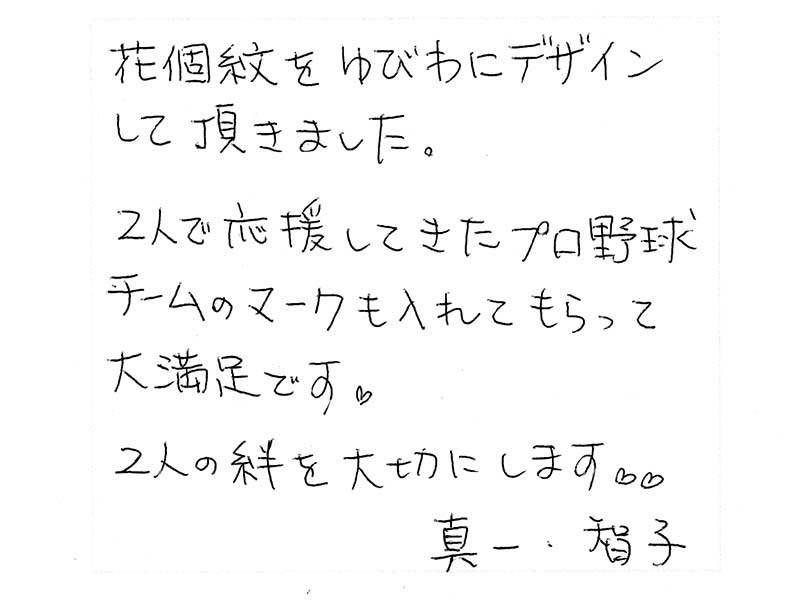 花個紋をゆびわにデザイン
して頂きました。
2人で応援してきたプロ野球
チームのマークも入れてもらって
大満足です。
2人の絆を大切にします。
真一・智子